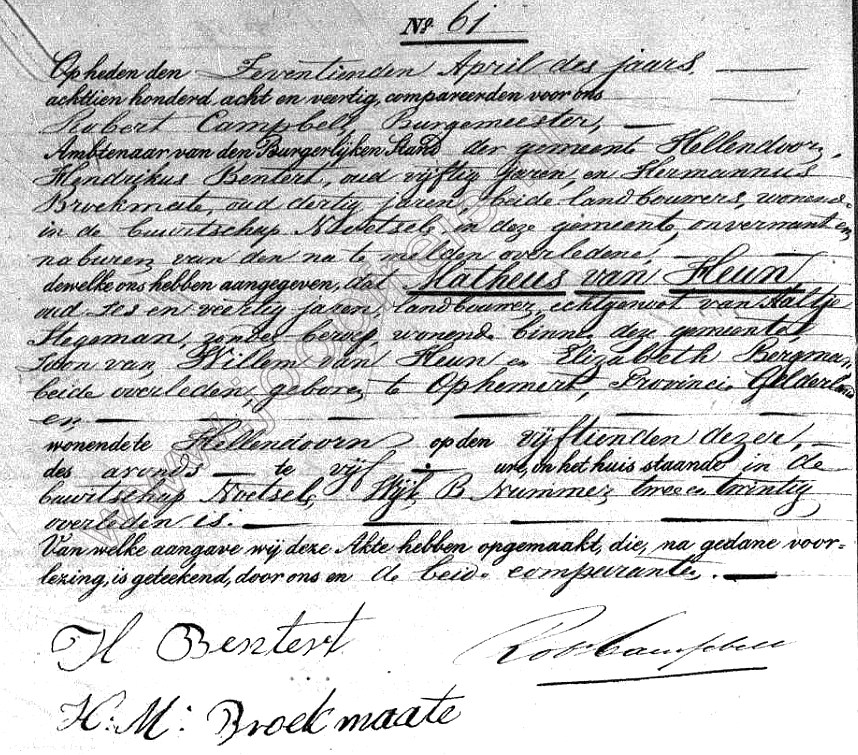 No. 61
Op heden den Zeventienden April des jaars
achttien honderd acht en veertig, compareerden voor ons
Robert Campbell, Burgemeester,
Ambtenaar van den Burgerlijken Stand der gemeente Hellendoorn,
Hendrikus Bentert, oud vijftig jaren, en Hermannus
Broekmate, oud dertig jaren, beide landbouwers, wonende
in de buurtschap Noetsele in deze gemeente, onvermant en
naburen van den na te melden overledene,
dewelke ons hebben aangegeven, dat Matheus van Heun
oud zes en veertig jaren, landbouwer, echtgenoot van Aaltje
Stegeman, zonder beroep, wonende binnen deze gemeente,
Zoon van Willem van Heun en Elizabeth Bergman
beide overleden, geboren te Ophemert, Provincie Gelderland
en
wonende te Hellendoorn op den vijftienden dezer,
des avonds te vijf ure, in het huis staande in de
buurtschap Noetsele, Wijk B Nummer twee en twintig
overleden is.
Van welke aangave wij deze Akte hebben opgemaakt, die, na gedane voor-
lezing, is geteekend, door ons en de beide comparanten.
H Bentert
Robt Campbell
H: M: Broekmaate